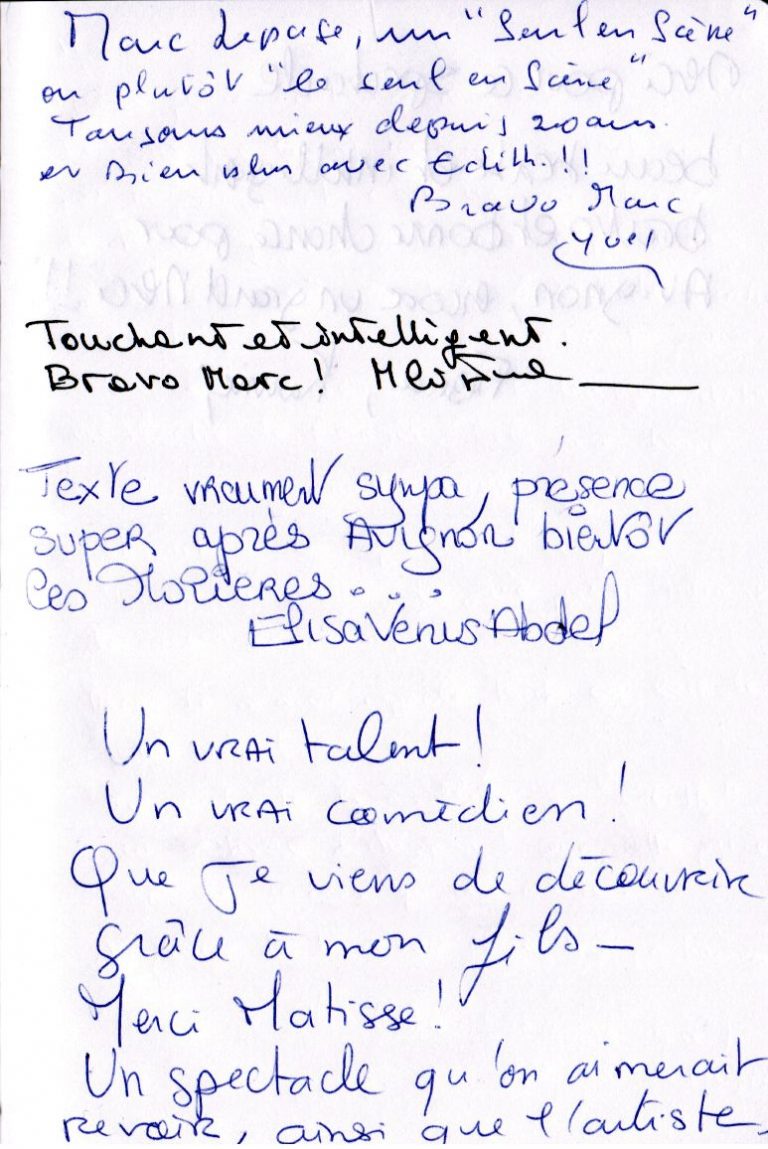 Marc depuse, un "Seul en Scène"
ou plutôt "le seul en Scène"
Toujours mieux depuis 20 ans
et Bien plus avec Edith.!!
Bravo Marc
Touchant et intelligent.
Bravo Marc!
Texte vraiment sympa, présence
super après Avignon bientôt
les Molières...
Elisa Venus Abdel
Un vrai talent!
Un vrai comédien!
Que Je viens de découvrir
grâce à mon fils –
Merci Matisse!
Un spectacle qu'on aimerait
revoir, ainsi que l'artiste.